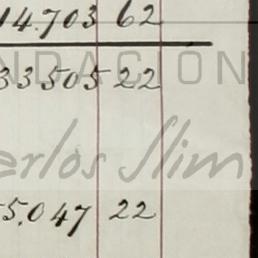 14.703 62
NDACIÓN
33505 22
erlos Slim
5.047 22